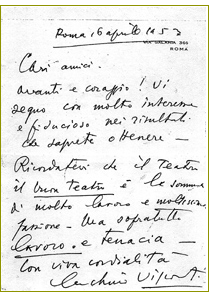 Roma, 16 aprile 1953
VIA SALARIA 366
ROMA
Cari amici.
avanti e coraggio! Vi
seguo con molto interesse
e fiducioso nei risultati
che saprete ottenere –
Ricordatevi che il teatro
il vero teatro è la somma
di molto lavoro e moltissima
passione. Ma sopratutto
lavoro e tenacia –
Con viva cordialità
Luchino Visconti